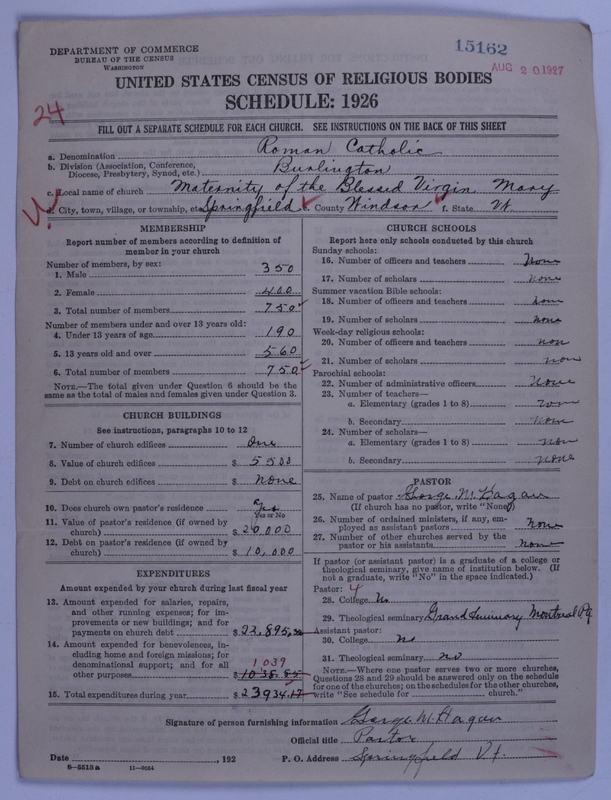 DEPARTMENT OF COMMERCE
BUREAU OF THE CENSUS
WASHINGTON
15162
AUG 20 1927
UNITED STATES CENSUS OF RELIGIOUS BODIES
SCHEDULE: 1926
24
FILL OUT A SEPARATE SCHEDULE FOR EACH CHURCH. SEE INSTRUCTIONS ON THE BACK OF THIS SHEET
a. Denomination Roman Catholic
b. Division (Association, Conference, Diocese, Presbytery, Synod, etc.) Burlington
c. Local name of church Maternity of the Blessed Virgin Mary
d. City, town, village, or township, etc. Springfield e. County Windsor f. State Vt.
MEMBERSHIP
Report number of members according to definition of
member in your church
Number of members, by sex:
1. Male 350
2. Female 400
3. Total number of members 750
Number of members under and over 13 years old:
4. Under 13 years of age 190
5. 13 years old and over 560
6. Total number of members 750
NOTE.—The total given under Question 6 should be
same as the total of males and females given under Question 3.
CHURCH BUILDINGS
See instructions, paragraphs 10 to 12
7. Number of church edifices One
8. Value of church edifices $ 5500
9. Debt on church edifices $ None
10. Does church own pastor's residence Yes
Yes or No
11. Value of pastor's residence (if owned by
church) $ 20,000
12. Debt on pastor's residence (if owned by
church) $ 10,000
EXPENDITURES
Amount expended by your church during last fiscal year
13. Amount expended for salaries, repairs,
and other running expenses; for im-
provements or new buildings; and for
payments on church debt $ 22,895.32
14. Amount expended for benevolences, in-
cluding home and foreign missions; for
denominational support; and for all 1039
other purposes $ 1038.85
15. Total expenditures during year $ 23934.17
CHURCH SCHOOLS
Report here only schools conducted by this church
Sunday schools:
16. Number of officers and teachers None
17. Number of scholars none
Summer vacation Bible schools:
18. Number of officers and teachers none
19. Number of scholars none
Week-day religious schools:
20. Number of officers and teachers non
21. Number of scholars non
Parochial schools:
22. Number of administrative officers None
23. Number of teachers—
a. Elementary (grades 1 to 8) none
b. Secondary None
24. Number of scholars—
a. Elementary (grades 1 to 8) non
b. Secondary none
PASTOR
25. Name of pastor George M. Hagan
(If church has no pastor, write "None")
26. Number of ordained ministers, if any, em-
ployed as assistant pastors none
27. Number of other churches served by the
pastor or his assistants none
If pastor (or assistant pastor) is a graduate of a college or
theological seminary, give name of institution below. (If
not a graduate, write "No" in the space indicated.)
Pastor: 4
28. College No
29. Theological seminary Grand Seminary Montreal P.Q
Assistant pastor:
30. College No
31. Theological seminary no
NOTE.—Where one pastor serves two or more churches,
Questions 28 and 29 should be answered only on the schedule
for one of the churches; on the schedules for the other churches,
write "See schedule for church."
Signature of person furnishing information George M. Hagan
Official title Pastor
Date , 192 P. O. Address Springfield Vt.
8—5513a 11—9064